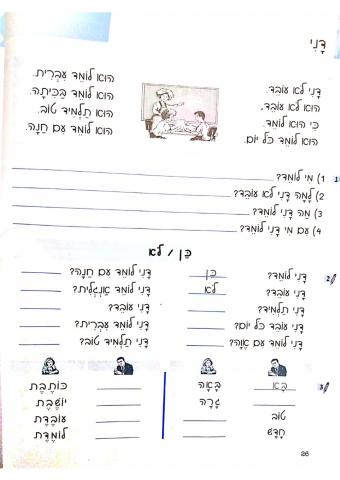 דָּנִי
דָּנִי לֹא עוֹבֵד.
הוּא לֹא עוֹבֵד,
כִּי הוּא לוֹמֵד.
הוּא לוֹמֵד כָּל יוֹם.
הוּא לוֹמֵד עִבְרִית.
הוּא לוֹמֵד בַּכִּיתָה.
הוּא תַּלְמִיד טוֹב.
הוּא לוֹמֵד עִם חַנָּה.
1
1) מִי לוֹמֵד?
2) לָמָּה דָּנִי לֹא עוֹבֵד?
3) מָה דָּנִי לוֹמֵד?
4) עִם מִי דָּנִי לוֹמֵד?
כֵּן / לֹא
2
דָּנִי לוֹמֵד? כֵּן
דָּנִי עוֹבֵד? לֹא
דָּנִי תַּלְמִיד?
דָּנִי עוֹבֵד כָּל יוֹם?
דָּנִי לוֹמֵד עִם
דָּנִי לוֹמֵד עִם חַנָּה?
דָּנִי לוֹמֵד אַנְגְּלִית?
דָּנִי עוֹבֵד?
דָּנִי לוֹמֵד עִבְרִית?
דָּנִי תַּלְמִיד טוֹב?
3
בָּא בָּאָה
גָּרָה
טוֹב
חָדָשׁ
כּוֹתֶבֶת
יוֹשֶׁבֶת
עוֹבֶדֶת
לוֹמֶדֶת
26